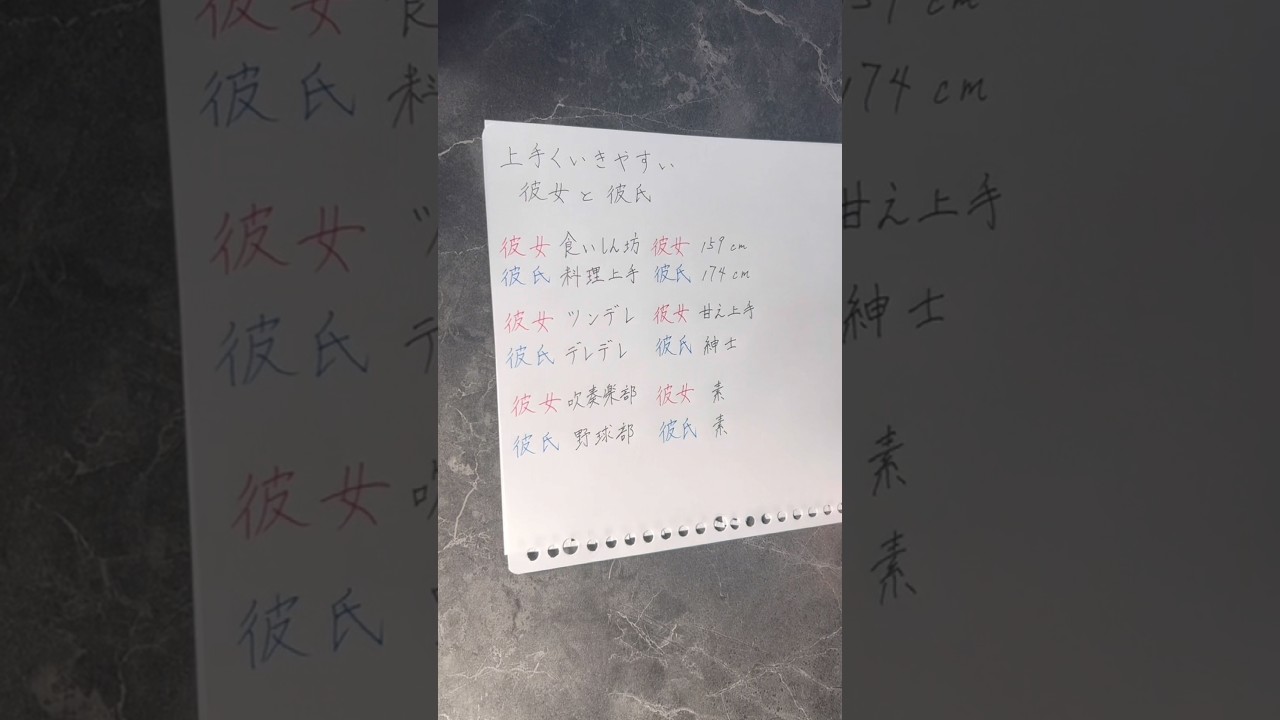 上手くいきやすい
彼女と彼氏
彼女 食いしん坊 彼女 159cm
彼氏 料理上手 彼氏 174cm
彼女 ツンデレ 彼女 甘え上手
彼氏 デレデレ 彼氏 紳士
彼女 吹奏楽部 彼女 素
彼氏 野球部 彼氏 素